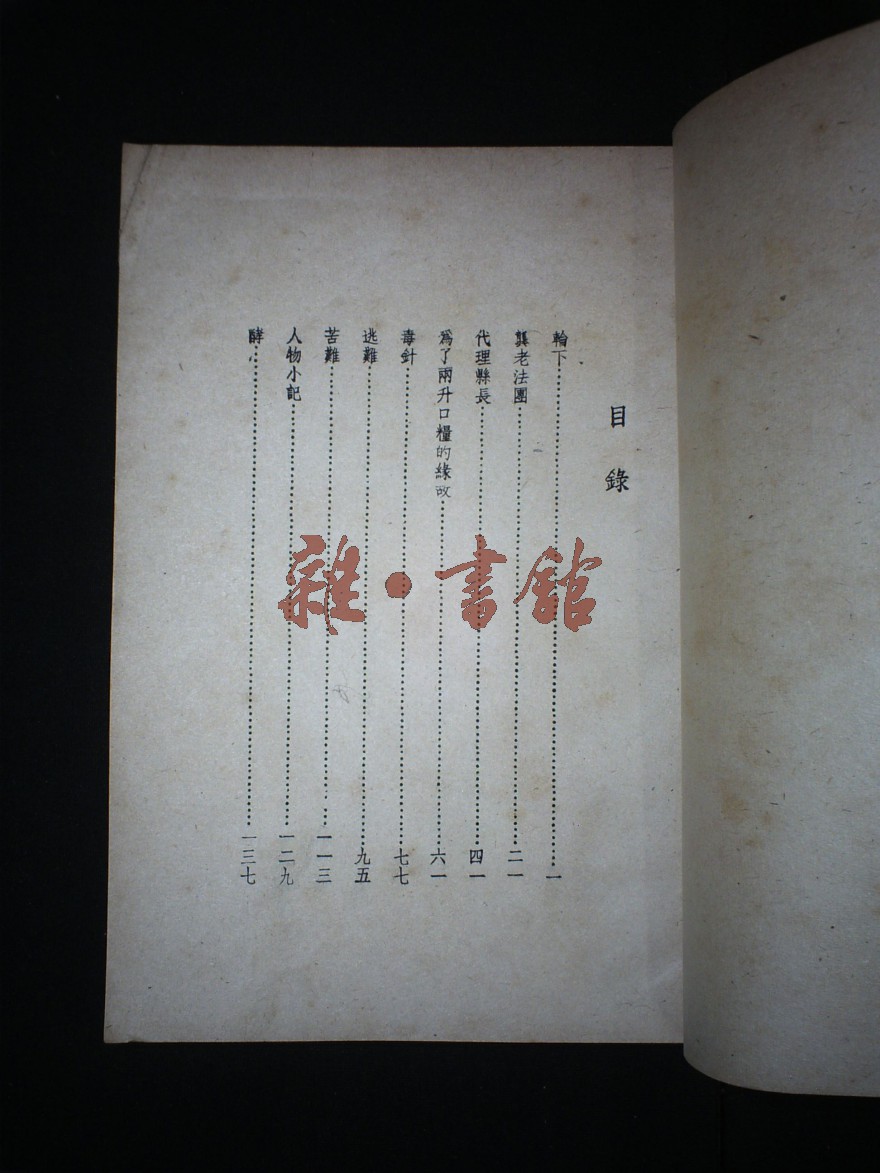 目錄
輪下……一
龔老法團……二一
代理縣長……四一
爲了兩升口糧的緣故……六一
毒針……七七
逃難……九五
苦難……一一三
人物小記……一二九
酵……一三七
雜·書館